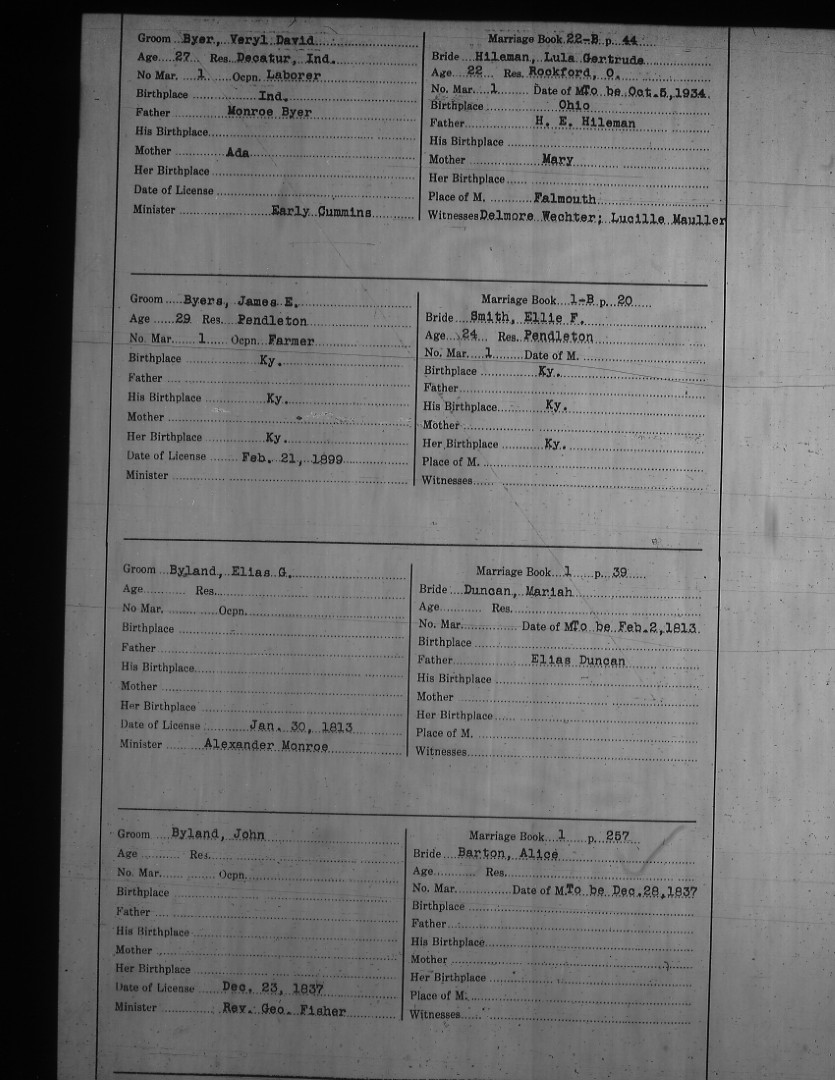 Groom Byer, Veryl David
Age 27 Res. Decatur, Ind.
No Mar. 1 Ocpn. Laborer
Birthplace Ind.
Father Monroe Byer
His Birthplace
Mother Ada
Her Birthplace
Date of License
Minister Early Cummins
Marriage Book 22-B p. 44
Bride Hileman, Lula Gertrude
Age 22 Res. Rockford, O.
No. Mar. 1 Date of M To be Oct.5,1934.
Birthplace Ohio
Father H. E. Hileman
His Birthplace
Mother Mary
Her Birthplace
Place of M. Falmouth
Witnesses Delmore Wechter; Lucille Mauller
Groom Byers, James E.
Age 29 Res. Pendleton
No. Mar. 1 Ocpn. Farmer
Birthplace Ky.
Father
His Birthplace Ky.
Mother
Her Birthplace Ky.
Date of License Feb. 21, 1899
Minister
Marriage Book 1-B p. 20
Bride Smith, Ellie F.
Age 24 Res. Pendleton
No. Mar. 1 Date of M.
Birthplace Ky.
Father
His Birthplace Ky.
Mother
Her Birthplace Ky.
Place of M.
Witnesses
Groom Byland, Elias G.
Age Res.
No Mar. Ocpn.
Birthplace
Father
His Birthplace
Mother
Her Birthplace
Date of License Jan. 30, 1813
Minister Alexander Monroe
Marriage Book 1 p. 39
Bride Duncan, Mariah
Age Res.
No. Mar. Date of M To be Feb.2,1813.
Birthplace
Father Elias Duncan
His Birthplace
Mother
Her Birthplace
Place of M.
Witnesses
Groom Byland, John
Age Res.
No. Mar. Ocpn.
Birthplace
Father
His Birthplace
Mother
Her Birthplace
Date of License Dec. 23, 1837
Minister Rev. Geo. Fisher
Marriage Book 1 p. 257
Bride Barton, Alice
Age Res.
No. Mar. Date of M. To be Dec.28,1837
Birthplace
Father
His Birthplace
Mother
Her Birthplace
Place of M.
Witnesses